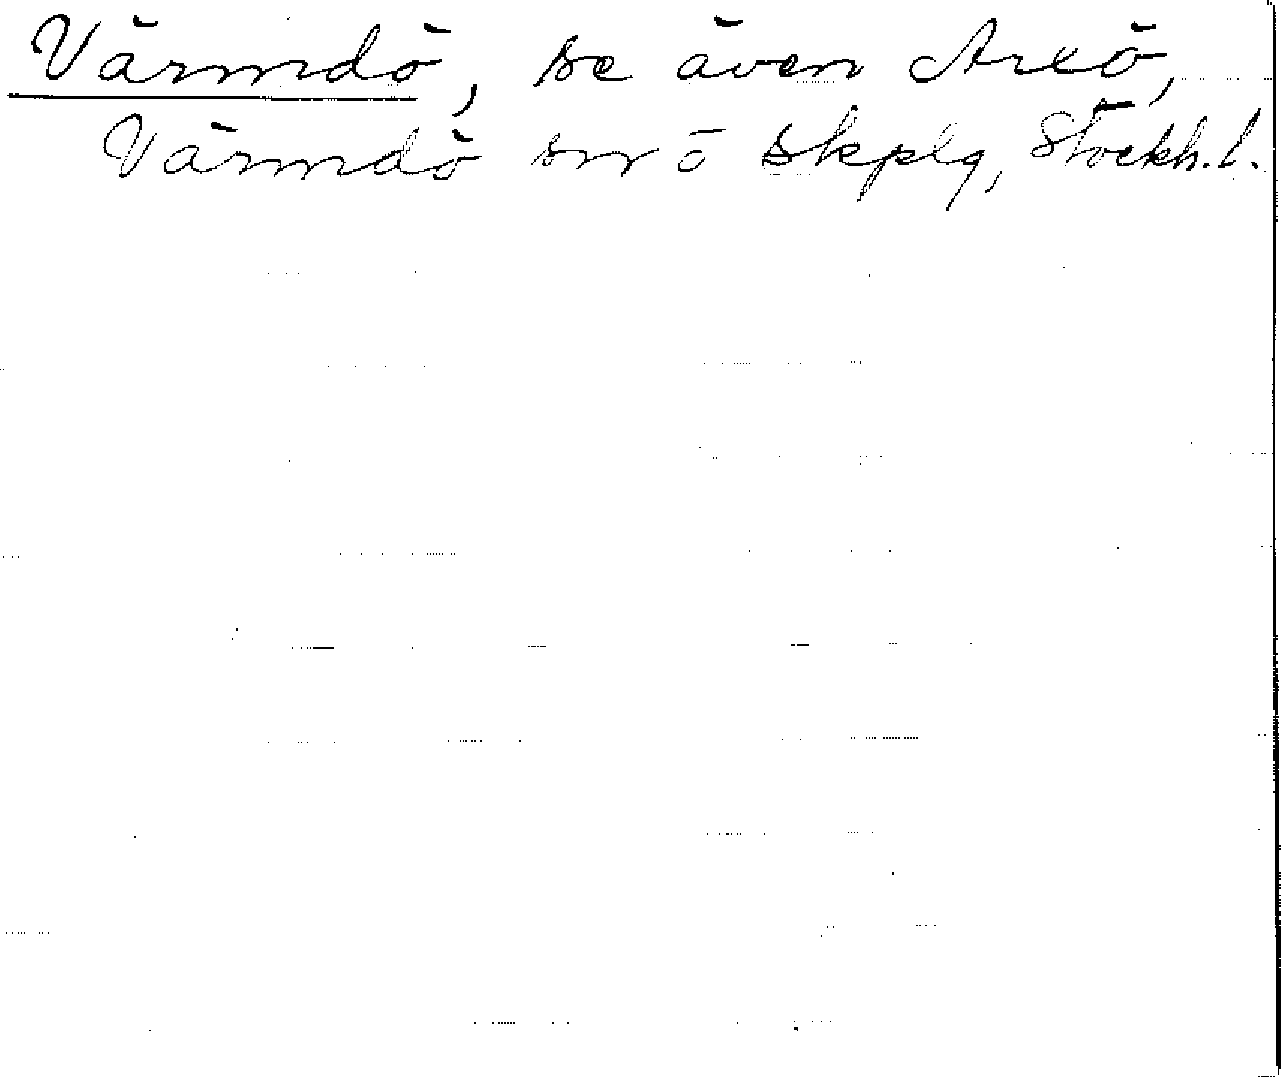 Värmdö, se även Arxö,
Värmdö sn o skplg, Stockh.l.